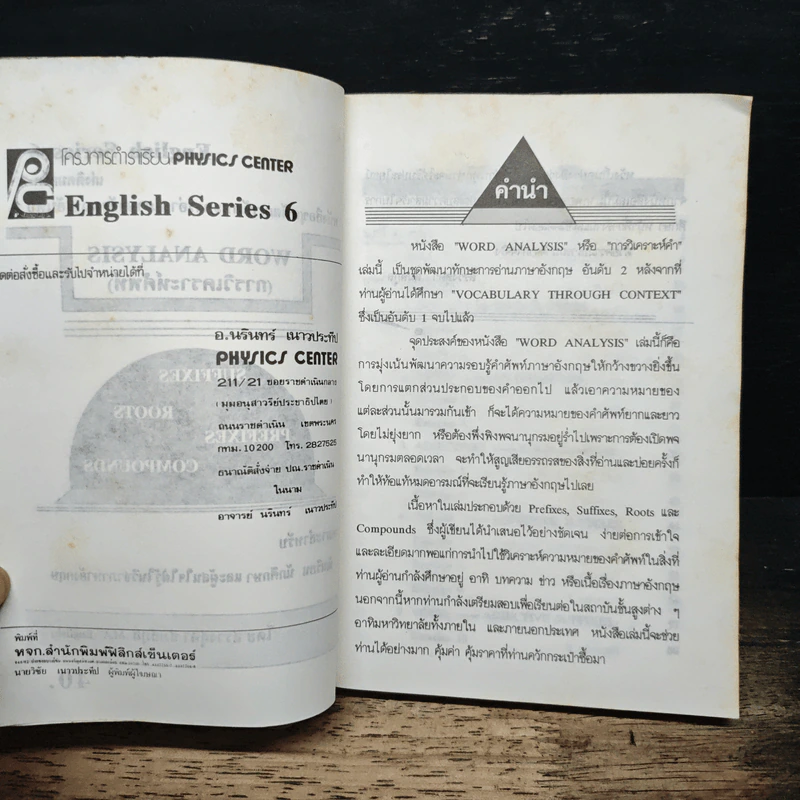 โครงการตำราเรียน PHYSICS CENTER
English Series 6
ติดต่อสั่งซื้อและรับไปจำหน่ายได้ที่
อ.นรินทร์ เนาวประทีป
PHYSICS CENTER
211/21 ซอยราชดำเนินกลาง
(มุมอนุสาวรีย์ประชาธิปไตย)
ถนนราชดำเนิน เขตพระนคร
กทม. 10200 โทร. 2827525
ธนาณัติสั่งจ่าย ปณ.ราชดำเนิน
ในนาม
อาจารย์ นรินทร์ เนาวประทีป
พิมพ์ที่
หจก.สำนักพิมพ์ฟิสิกส์เซ็นเตอร์
นายวิชัย เนาวประทีป ผู้พิมพ์ผู้โฆษณา
คำนำ
หนังสือ "WORD ANALYSIS" หรือ "การวิเคราะห์คำ"
เล่มนี้ เป็นชุดพัฒนาทักษะการอ่านภาษาอังกฤษ อันดับ 2 หลังจากที่
ท่านผู้อ่านได้ศึกษา "VOCABULARY THROUGH CONTEXT"
ซึ่งเป็นอันดับ 1 จบไปแล้ว
จุดประสงค์ของหนังสือ "WORD ANALYSIS" เล่มนี้ก็คือ
การมุ่งเน้นพัฒนาความรอบรู้คำศัพท์ภาษาอังกฤษให้กว้างขวางยิ่งขึ้น
โดยการแตกส่วนประกอบของคำออกไป แล้วเอาความหมายของ
แต่ละส่วนนั้นมารวมกันเข้า ก็จะได้ความหมายของคำศัพท์ยากและยาว
โดยไม่ยุ่งยาก หรือต้องพึ่งพิงพจนานุกรมอยู่ร่ำไปเพราะการต้องเปิดพจ
นานุกรมตลอดเวลา จะทำให้สูญเสียอรรถรสของสิ่งที่อ่านและบ่อยครั้งก็
ทำให้ท้อแท้หมดอารมณ์ที่จะเรียนรู้ภาษาอังกฤษไปเลย
เนื้อหาในเล่มประกอบด้วย Prefixes, Suffixes, Roots และ
Compounds ซึ่งผู้เขียนได้นำเสนอไว้อย่างชัดเจน ง่ายต่อการเข้าใจ
และละเอียดมากพอแก่การนำไปใช้วิเคราะห์ความหมายของคำศัพท์ในสิ่งที่
ท่านผู้อ่านกำลังศึกษาอยู่ อาทิ บทความ ข่าว หรือเนื้อเรื่องภาษาอังกฤษ
นอกจากนี้หากท่านกำลังเตรียมสอบเพื่อเรียนต่อในสถาบันชั้นสูงต่าง ๆ
อาทิมหาวิทยาลัยทั้งภายใน และภายนอกประเทศ หนังสือเล่มนี้จะช่วย
ท่านได้อย่างมาก คุ้มค่า คุ้มราคาที่ท่านควักกระเป๋าซื้อมา